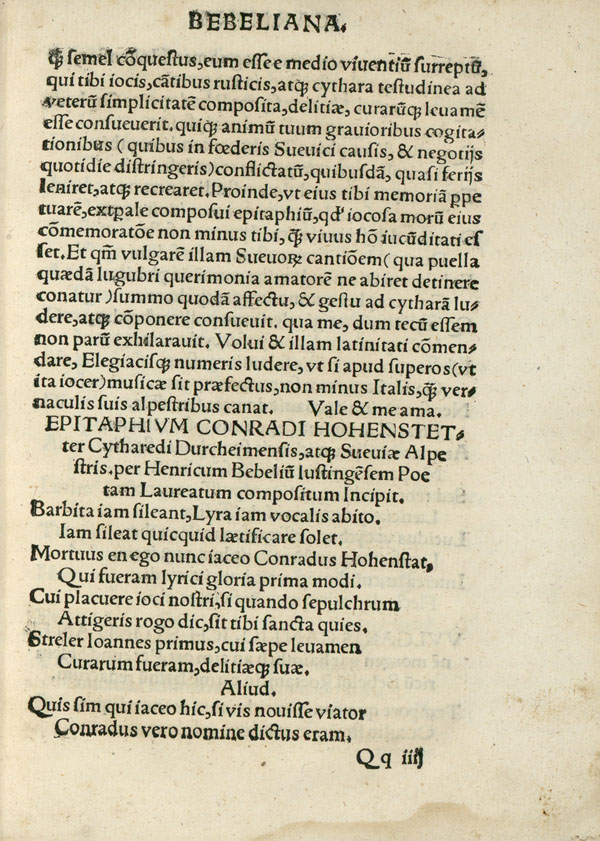 BEBELIANA.
ꝙ̃ semel cõquestus, eum esse e medio viuentiũ surreptũ,
qui tibi iocis, cãtibus rusticis, atq; cythara testudinea ad
veterũ simplicitatẽ composita, delitiæ, curarũq; leuamẽ
esse consueuerit. quiq; animũ tuum grauioribus cogita-
tionibus (quibus in fœderis Sueuici causis, & negotijs
quotidie distringeris) conflictatũ, quibusdã, quasi ferijs
leniret, atq; recrearet. Proinde, vt eius tibi memoriã ꝑpe
tuarẽ, extꝑale composui epitaphiũ, qd' iocosa morũ eius
cõmemoratõe non minus tibi, ꝙ̃ viuus hõ iucũditati es
set. Et qm̃ vulgarẽ illam Sueuoꝝ cantiõem (qua puella
quædã lugubri querimonia amatorẽ ne abiret detinere
conatur) summo quodã affectu, & gestu ad cytharã lu-
dere, atq; cõponere consueuit. qua me, dum tecũ essem
non parũ exhilarauit. Volui & illam latinitati cõmen-
dare, Elegiacisq; numeris ludere, vt si apud superos (vt
ita iocer) musicæ sit præfectus, non minus Italis, ꝙ̃ ver-
naculis suis alpestribus canat. Vale & me ama.
EPITAPHIVM CONRADI HOHENSTET-
ter Cytharedi Durcheimensis, atq; Sueuiæ Alpe
stris. per Henricum Bebeliũ Iustingẽsem Poe
tam Laureatum compositum Incipit.
Barbita iam sileant, Lyra iam vocalis abito.
Iam sileat quicquid lætificare solet.
Mortuus en ego nunc iaceo Conradus Hohenstat,
Qui fueram lyrici gloria prima modi.
Cui placuere ioci nostri, si quando sepulchrum
Attigeris rogo dic, sit tibi sancta quies.
Streler Ioannes primus, cui sæpe leuamen
Curarum fueram, delitiæq; suæ.
Aliud.
Quis sim qui iaceo hic, si vis nouisse viator
Conradus vero nomine dictus eram.
Qq iiij